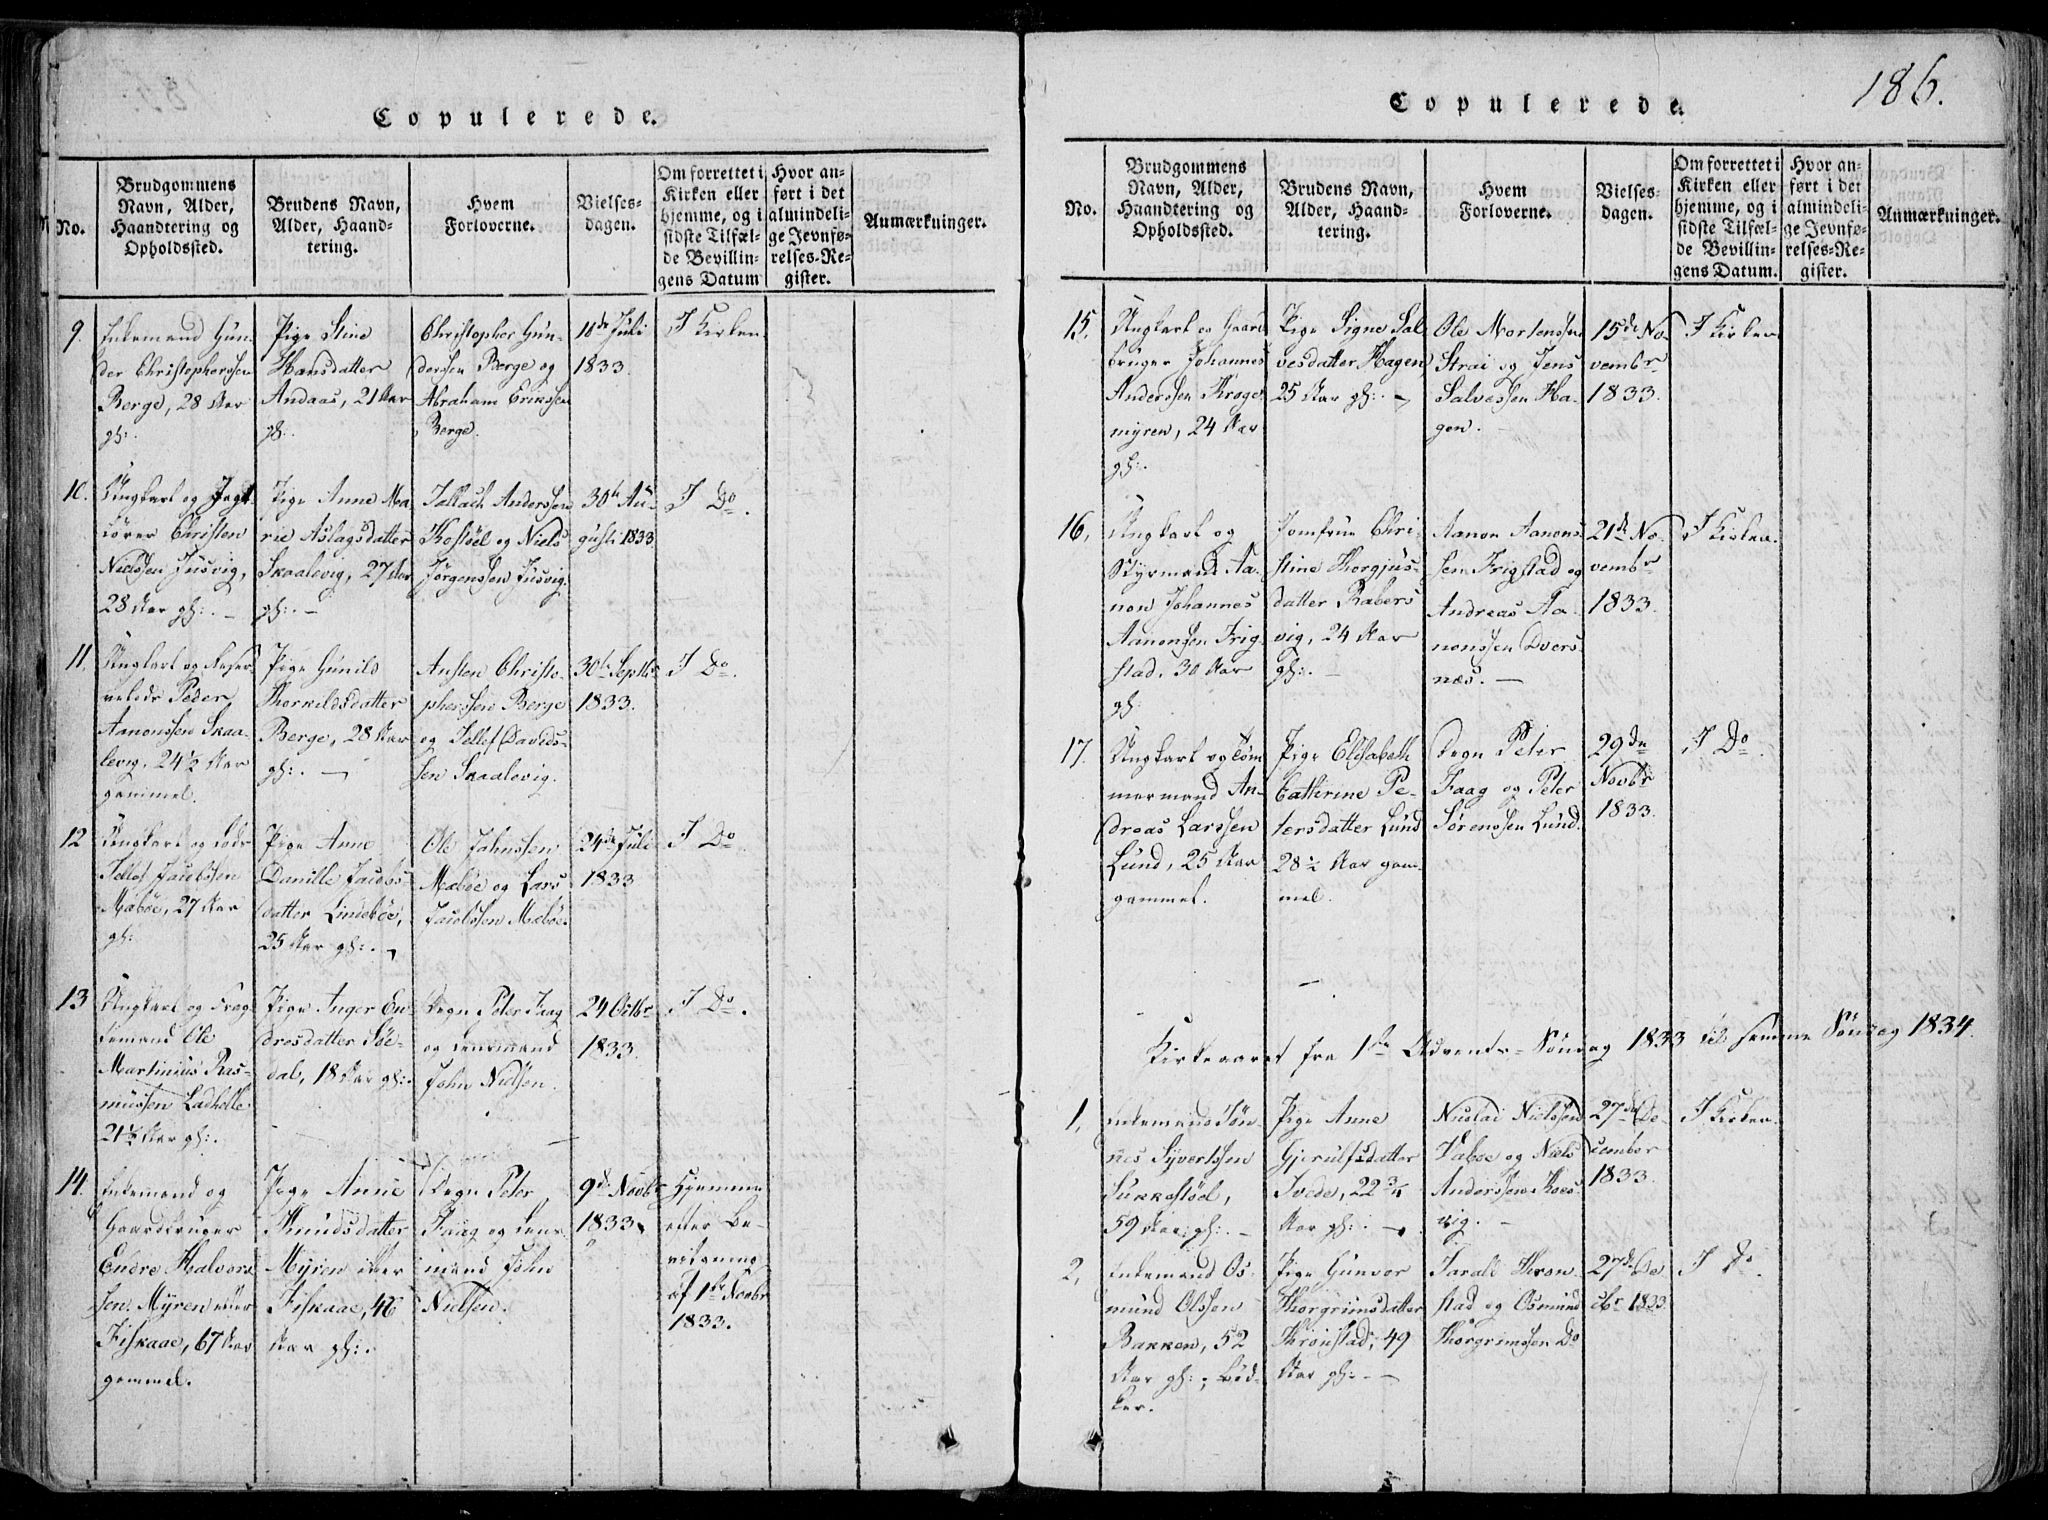 Copulerede.
No.
Brudgommens
Navn, Alder,
Haandtering og
Opholdssted.
Brudens Navn,
Alder, Haand-
tering.
Hvem
Forloverne.
Vielses-
dagen.
Om forrettet i
Kirken eller
hjemme, og i
sidste Tilfæl-
de Bevillin-
gens Datum
Hvor an-
ført i det
almindeli-
ge Jevnfø-
relses-Re-
gister.
Anmærkninger.
9.
Enkemand Gun-
der Christophersen
Berge, 28 Aar
gl:.
Pige Stine
Hansdatter
Andaas, 21 Aar
gl.
Christopher Gun-
dersen Berge og
Abraham Erikssen
Berge.
10de Juli
1833
I Kirken
10.
Ungkarl og
Christen
Nielssen Jusvig,
28 Aar gl:. -
Pige Anne Ma
rie Aslagsdatter
Skaalevig, 27 Aar
gl:. -
Tallach Anderssen
Kostöel og Niels
Jörgenssen Jusvig.
30te Au-
gusti 1833
I Do.
11.
Ungkarl og
Peder
Aanonssen Skaa-
levig, 24 1/2 Aar
gammel.
Pige Gunild
Thorkildsdatter
Berge, 28 Aar
gl:. -
Austen Christo-
pherssen Berge
og Tellef Davids-
sen Skaalevig.
30te Septbr
1833.
I Do.
12
Ungkarl og Lods
Tellef Jacobssen
Mæbøe, 27 Aar
gl:
Pige Anne
Danille Jacobs-
datter Lindebøe,
25 Aar gl:. -
Ole Jahnssen
Mæbøe og Lars
Jacobssen Mæbøe.
24de Juli
1833
I Do
13
Ungkarl og Frag-
temand Ole
Martinius Ras-
mussen Ladhelle
21 1/2 Aar gl:.
Pige Anger En
dresdatter Söe-
dal, 18 Aar gl:.
Degn Peter Faag
og Lensmand
John Nielsen.
24 Octbr
1833.
I Do.
14.
Enkemand og
Gaardbruger
Endre Halvors
sen Myren eller
Fiskaae, 67 Aar
gammel.
Pige Anne
Knudsdatter
Myren eller
Fiskaae, 46
Aar gl:.
Degn Peter
Faag og Lens
mand John
Nielsen.
9de Novbr
1833.
Hjemme
efter Be-
vilgning
af 1ste Novbr
1833.
186.
Copulerede.
No.
Brudgommens
Navn, Alder,
Haandtering og
Opholdssted.
Brudens Navn,
Alder, Haand-
tering.
Hvem
Forloverne.
Vielses-
dagen.
Om forrettet i
Kirken eller
hjemme, og i
sidste Tilfæl-
de Bevillin-
gens Datum.
Hvor an-
ført i det
almindeli-
ge Jevnfø-
relses-Re-
gister.
Anmærkninger.
15.
Ungkarl og Gaard
bruger Johannes
Anderssen Kroge-
myren, 24 Aar
gl:.
Pige Signe Sal
vesdatter Hagen
25 Aar gl:. -
Ole Mortenssen
Strai og Jens
Salvessen Ha-
gen. -
15de No-
vembr
1833.
I Kirken
16.
Ungkarl og
Styrmand Aa-
non Johannes
Aanonsen Frig-
stad, 30 Aar
gl:
Jomfrue Chri-
stine Thorgjus-
datter Rabers
vig, 24 Aar
gl:. -
Aanon Aanons-
sen Frigstad og
Andreas Aa-
nonssen Dvers-
næs. -
21de No-
vembr
1833.
I Kirken.
17.
Ungkarl og Töm
mermand An-
dreas Larssen
Lund, 25 Aar
gammel.
Pige Elisabeth
Cathrine Pe-
tersdatter Lund
28 1/2 Aar gam-
mel.
Degn Peter
Faag og Peter
Sörenssen Lund.
29de
Novbr
1833.
I Do.
Kirkeaaret fra 1ste Advents-Söndag 1833 til samme Söndag 1834.
1.
Enkemand Tön
nes Syvertssen
Sukkestöel,
59 Aar gl:. -
Pige Anne
Gjerulfsdatter
Tvede, 22 3/4
Aar gl:. -
Nicolai Nielssen
Vaboe og Niels
Anderssen Roes
vig. -
27de De
cember
1833.
I Kirken.
2.
Enkemand Os-
mund Olssen
Bakken, 52
Aar gl:, Bød-
ker.
Pige Gunvor
Thorgrimsdatter
Thronstad, 49
Aar gl:. -
Tarald Thron-
stad og Osmund
Thorgrimssen Do
27de De
cbr 1833.
I Do